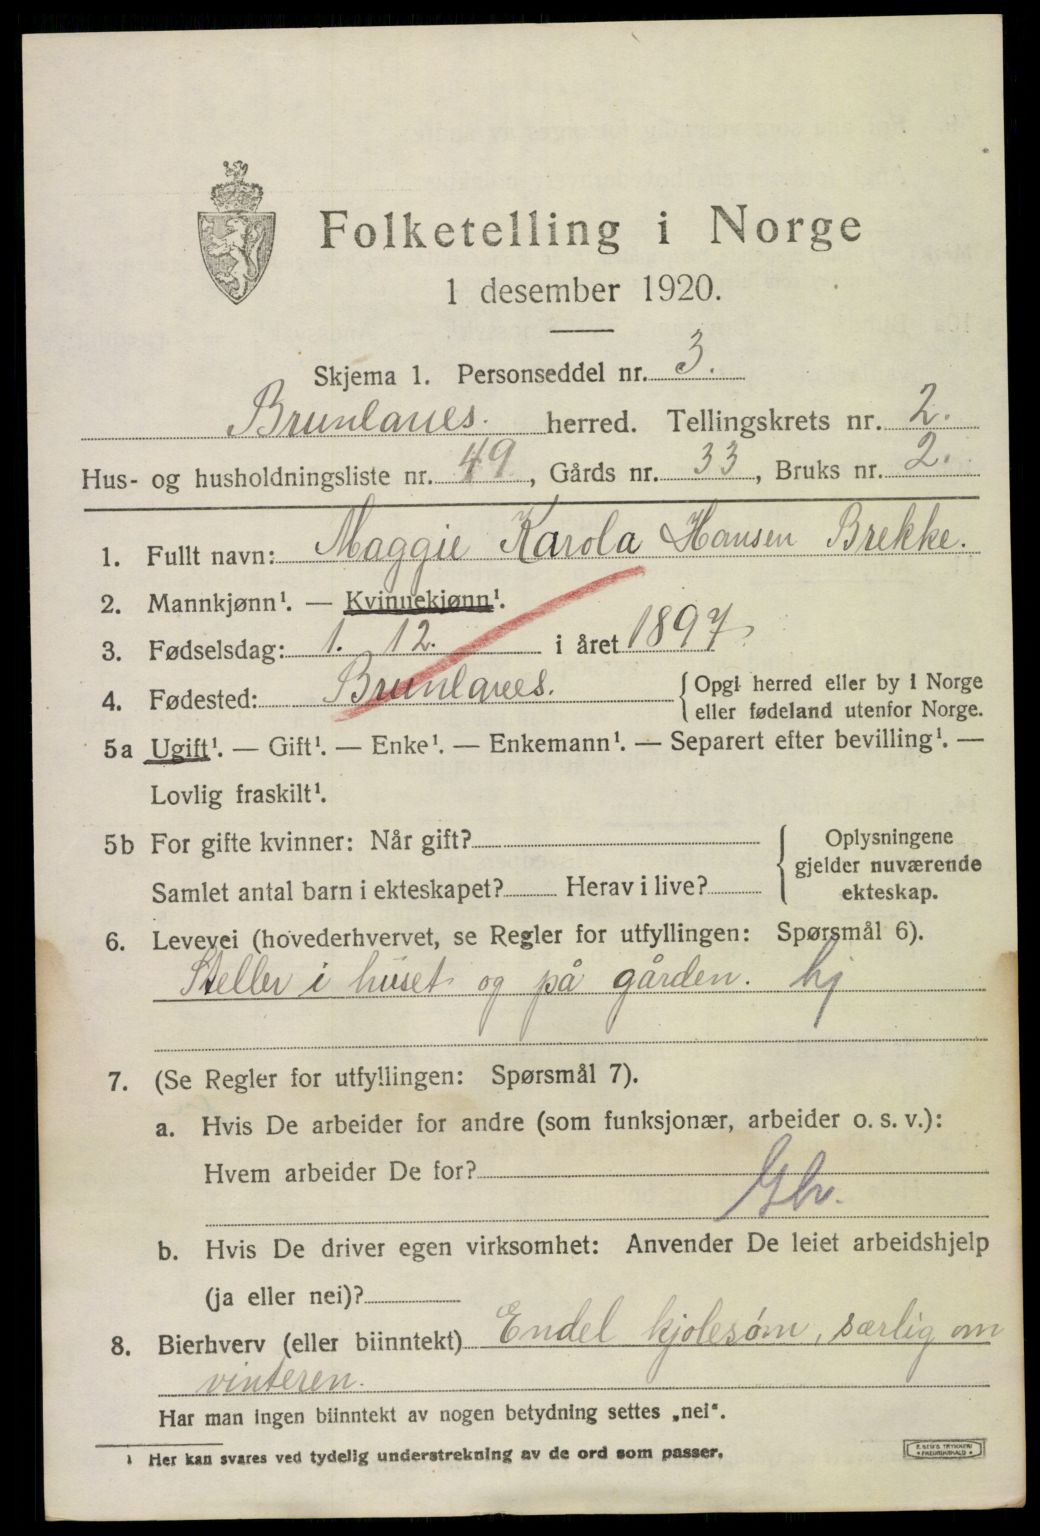 Folketelling i Norge
1 desember 1920.
Skjema 1. Personseddel nr. 3.
Brunlanes. herred. Tellingskrets nr. 2.
Hus- og husholdningsliste nr. 49, Gårds nr. 33, Bruks nr. 2.
1. Fullt navn: Maggie Karola Hansen Brekke.
2. Mannkjønn¹. — Kvinnekjønn¹.
3. Fødselsdag: 1. 12. i året 1897
4. Fødested: Brunlanes. {Opgi herred eller by i Norge
eller fødeland utenfor Norge.
5a Ugift¹. — Gift¹. — Enke¹. — Enkemann¹. — Separert efter bevilling¹. —
Lovlig fraskilt¹.
5b For gifte kvinner: Når gift?
Samlet antal barn i ekteskapet? Herav i live?
Oplysningene
gjelder nuværende
ekteskap.
6. Levevei (hovederhvervet, se Regler for utfyllingen: Spørsmål 6).
Steller i huset og på gården. hj
7. (Se Regler for utfyllingen: Spørsmål 7).
a. Hvis De arbeider for andre (som funksjonær, arbeider o. s. v.):
Hvem arbeider De for?
b. Hvis De driver egen virksomhet: Anvender De leiet arbeidshjelp
(ja eller nei)?
8. Bierhverv (eller biinntekt) Endel kjolesøm, særlig om
vinteren.
Har man ingen biinntekt av nogen betydning settes „nei“.
¹ Her kan svares ved tydelig understrekning av de ord som passer.